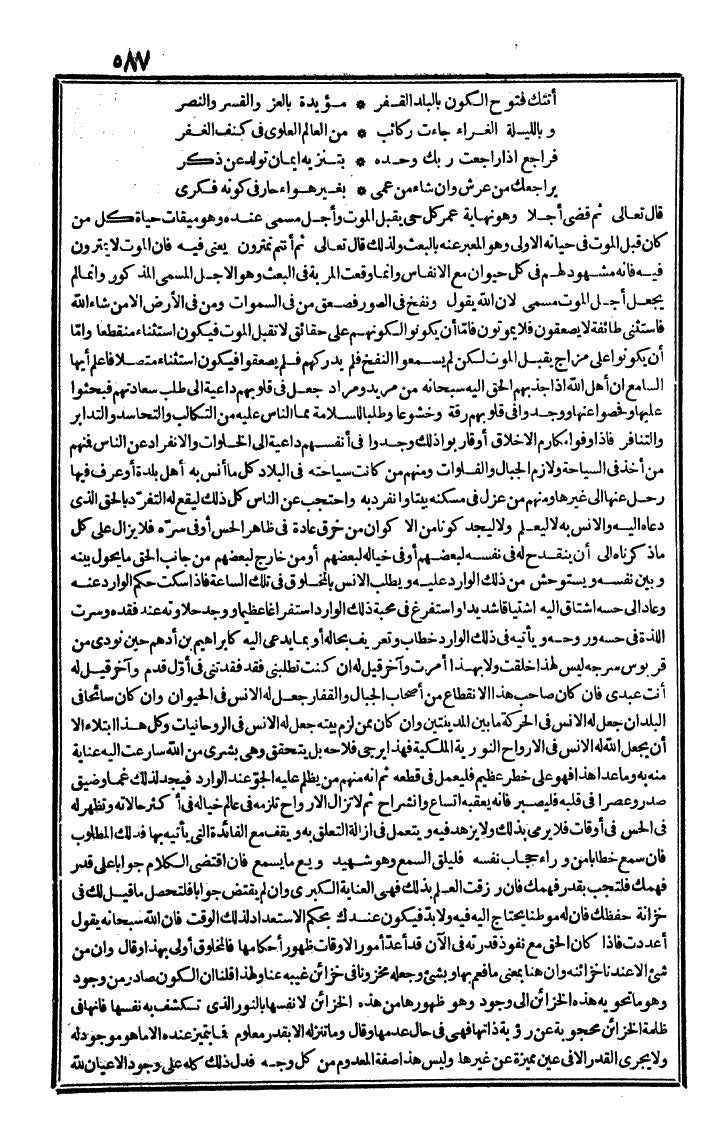 ٥٨٧
أتتك فتوح الكون بالبلد القفر * مؤيدة بالعز والقسر والنصر
وبالليلة الغراء جاءت ركائب * من العالم العلوى فى كنف الغفر
فراجع اذا راجعت ربك وحده * بتنزيه ايمان تولد عن ذكر
يراجعك من عرش وان شاء من عمى * بغير هواء حار فى كونه فكرى
قال تعالى ثم قضى أجلا وهو نهاية عمر كل حى يقبل الموت وأجل مسمى عنده وهو ميقات حياة كل من
كان قبل الموت فى حياته الاولى وهو المعبر عنه بالبعث ولذلك قال تعالى ثم أنتم تمترون يعنى فيه فان الموت لا يمترون
فيه فانه مشهود لهم فى كل حيوان مع الانفاس وانما وقعت المرية فى البعث وهو الاجل المسمى المذكور وانما لم
يجعل أجل الموت مسمى لان الله يقول ونفخ فى الصور فصعق من فى السموات ومن فى الأرض الا من شاء الله
فاستثنى طائفة لا يصعقون فلا يموتون فامّا أن يكونوا لكونهم على حقائق لا تقبل الموت فيكون استثناء منقطعا وامّا
أن يكونوا على مزاج يقبل الموت لكن لم يسمعوا النفخ فلم يدركهم فلم يصعقوا فيكون استثناء متصلا فاعلم أيها
السامع ان أهل الله اذا جذبهم الحق اليه سبحانه من مريد ومراد جعل فى قلوبهم داعية الى طلب سعادتهم فبحثوا
عليها وفحصوا عنها ووجدوا فى قلوبهم رقة وخشوعا وطلبا للسلامة مما الناس عليه من التكالب والتحاسد والتدابر
والتنافر فاذا وفوا مكارم الاخلاق أو قاربوا ذلك وجدوا فى أنفسهم داعية الى الخلوات والانفراد عن الناس فمنهم
من أخذ فى السياحة ولازم الجبال والفلوات ومنهم من كانت سياحته فى البلاد كل ما أنس به أهل بلدة أو عرف فيها
رحل عنها الى غيرها ومنهم من عزل فى مسكنه بيتا وانفرد به واحتجب عن الناس كل ذلك ليقع له التفرّد بالحق الذى
دعاه اليه والانس به لا ليعلم ولا ليجد كونا من الاكوان من خرق عادة فى ظاهر الحس أو فى سرّه فلا يزال على كل
ماذكرناه الى أن ينقدح له فى نفسه لبعضهم أو فى خياله لبعضهم أو من خارج لبعضهم من جانب الحق ما يحول بينه
وبين نفسه ويستوحش من ذلك الوارد عليه ويطلب الانس بالمخلوق فى تلك الساعة فاذا سكت حكم الوارد عنه
وعاد الى حسه اشتاق اليه اشتياقا شديدا واستفرغ فى محبة ذلك الوارد استفراغا عظيما ووجد حلاوته عند فقده وسرت
اللذة فى حسه وروحه ويأتيه فى ذلك الوارد خطاب وتعريف بحاله أو بما يدعى اليه كابراهيم بن أدهم حين نودى من
قربوس سرجه ليس لهذا خلقت ولا بهذا أمرت وآخر قيل له ان كنت تطلبنى فقد فقدتنى فى أوّل قدم وآخر قيل له
أنت عبدى فان كان صاحب هذا الانقطاع من أصحاب الجبال والقفار جعل له الانس فى الحيوان وان كان سائحا فى
البلدان جعل له الانس فى الحركة ما بين المدينتين وان كان ممن لزم بيته جعل له الانس فى الروحانيات وكل هذا ابتلاء الا
أن يجعل الله له الانس فى الارواح النورية الملكية فهذا يرجى فلاحه بل يتحقق وهى بشرى من الله سارعت اليه عناية
منه به وما عدا هذا فهو على خطر عظيم فليعمل فى قطعه ثم انه منهم من يظلم عليه الجوّ عند الوارد فيجد لذلك غما وضيق
صدر وعصرا فى قلبه فليصبر فانه يعقبه اتساع وانشراح ثم لا تزال الارواح تلزمه فى عالم خياله فى أكثر حالاته وتظهر له
فى الحس فى أوقات فلا يرمى بذلك ولا يزهد فيه ويتعمل فى ازالة التعلق به ويقف مع الفائدة التى يأتيه بها فذلك المطلوب
فان سمع خطابا من وراء حجاب نفسه فليلق السمع وهو شهيد ويع ما يسمع فان اقتضى الكلام جوابا على قدر
فهمك فلتجب بقدر فهمك فان رزقت العلم بذلك فهى العناية الكبرى وان لم يقتض جوابا فلتحصل ما قيل لك فى
خزانة حفظك فان له موطنا يحتاج اليه فيه ولا بدّ فيكون عندك بحكم الاستعداد لذلك الوقت فان الله سبحانه يقول
أعددت فاذا كان الحق مع نفوذ قدرته فى الآن قد أعدّ أمورا لاوقات ظهور أحكامها فالمخلوق أولى بهذا وقال وان من
شئ الا عندنا خزائنه وان هنا بمعنى ما فعم بها وبشئ وجعله مخزونا فى خزائن غيبه عنا ولهذا قلنا ان الكون صادر من وجود
وهو ما تحويه هذه الخزائن الى وجود وهو ظهورها من هذه الخزائن لانفسها بالنور الذى تكشف به نفسها فانها فى
ظلمة الخزائن محجوبة عن رؤية ذاتها فهى فى حال عدمها وقال وما ننزله الا بقدر معلوم فما يتميز عنده الا ما هو موجود له
ولا يجرى القدر الا فى عين مميزة عن غيرها وليس هذا صفة المعدوم من كل وجه فدل ذلك كله على وجود الاعيان لله